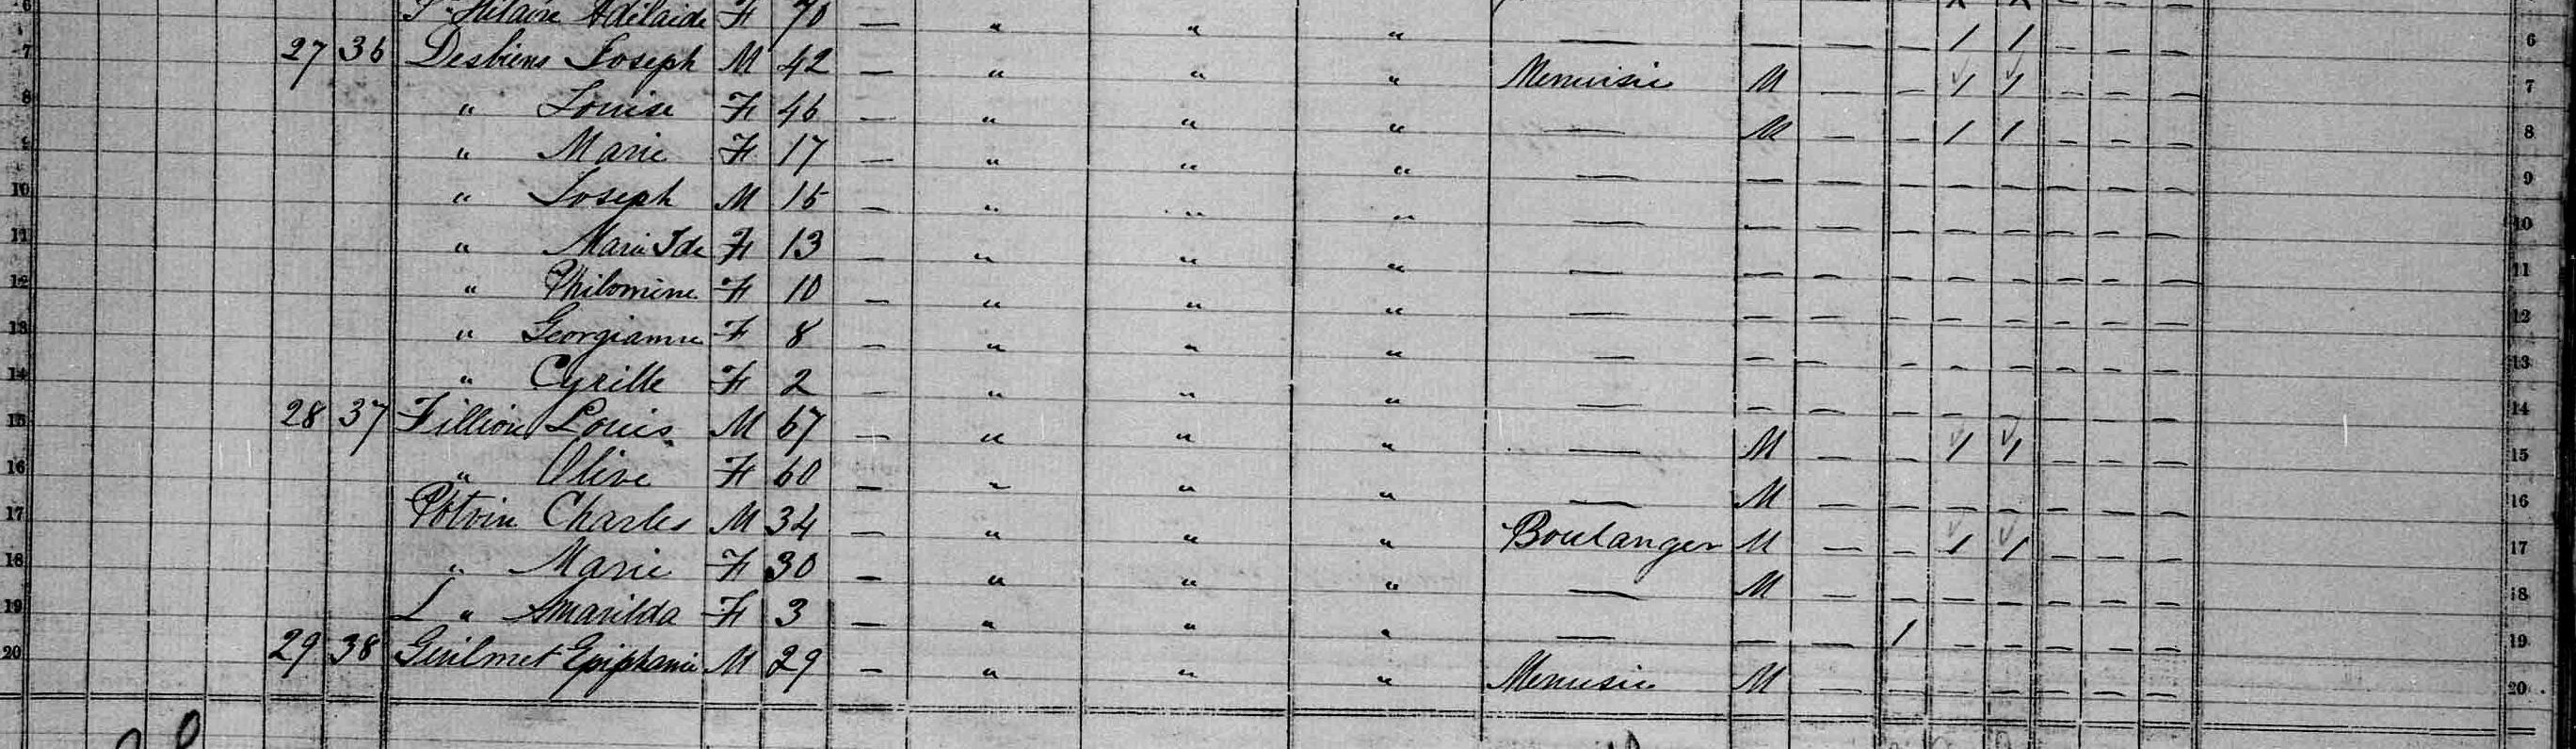 6 St Hilaire Adélaide F 70 — " " " — — — — / / — — — 6
7 27 36 Desbiens Joseph M 42 — " " " Menuisie M — — / / — — — 7
8 " Louise F 46 — " " " — M — — / / — — — 8
9 " Marie F 17 — " " " — — — — — — — — — 9
10 " Joseph M 15 — " " " — — — — — — — — — 10
11 " Marie Ide F 13 — " " " — — — — — — — — — 11
12 " Philomène F 10 — " " " — — — — — — — — — 12
13 " Georgianne F 8 — " " " — — — — — — — — — 13
14 " Cyrille F 2 — " " " — — — — — — — — — 14
15 28 37 Fillion Louis M 67 — " " " — M — — / / — — — 15
16 " Olive F 60 — " " " — M — — — — — — — 16
17 Potvin Charles M 34 — " " " Boulanger M — — / / — — — 17
18 " Marie F 30 — " " " — M — — — — — — — 18
19 L " Amarilda F 3 — " " " — — — / — — — — — 19
20 29 38 Guilmet Epiphanie M 29 — " " " Menusie M — — — — — — — 20